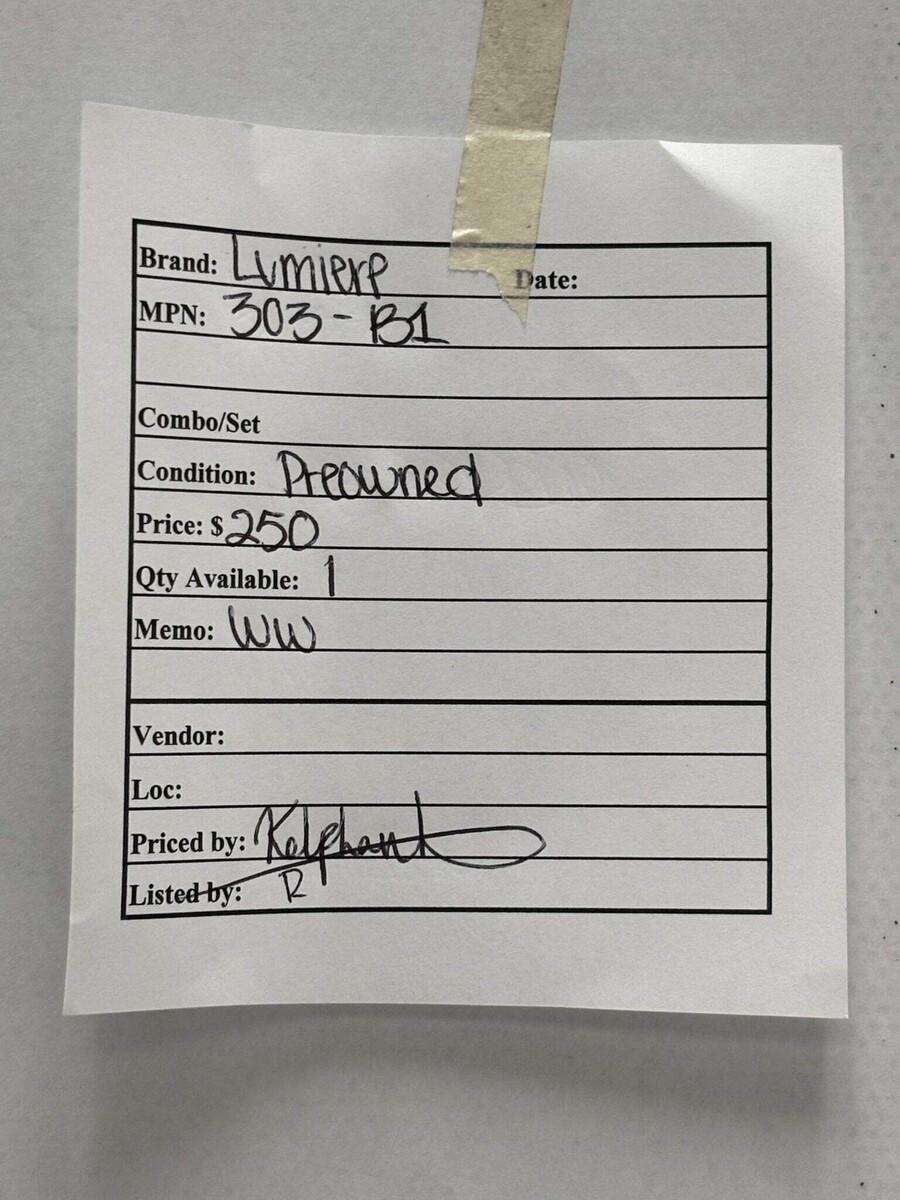 Brand: Lumiere Date:
MPN: 303-B1
Combo/Set
Condition: Preowned
Price: $250
Qty Available: 1
Memo: WW
Vendor:
Loc:
Priced by:
Listed by: R